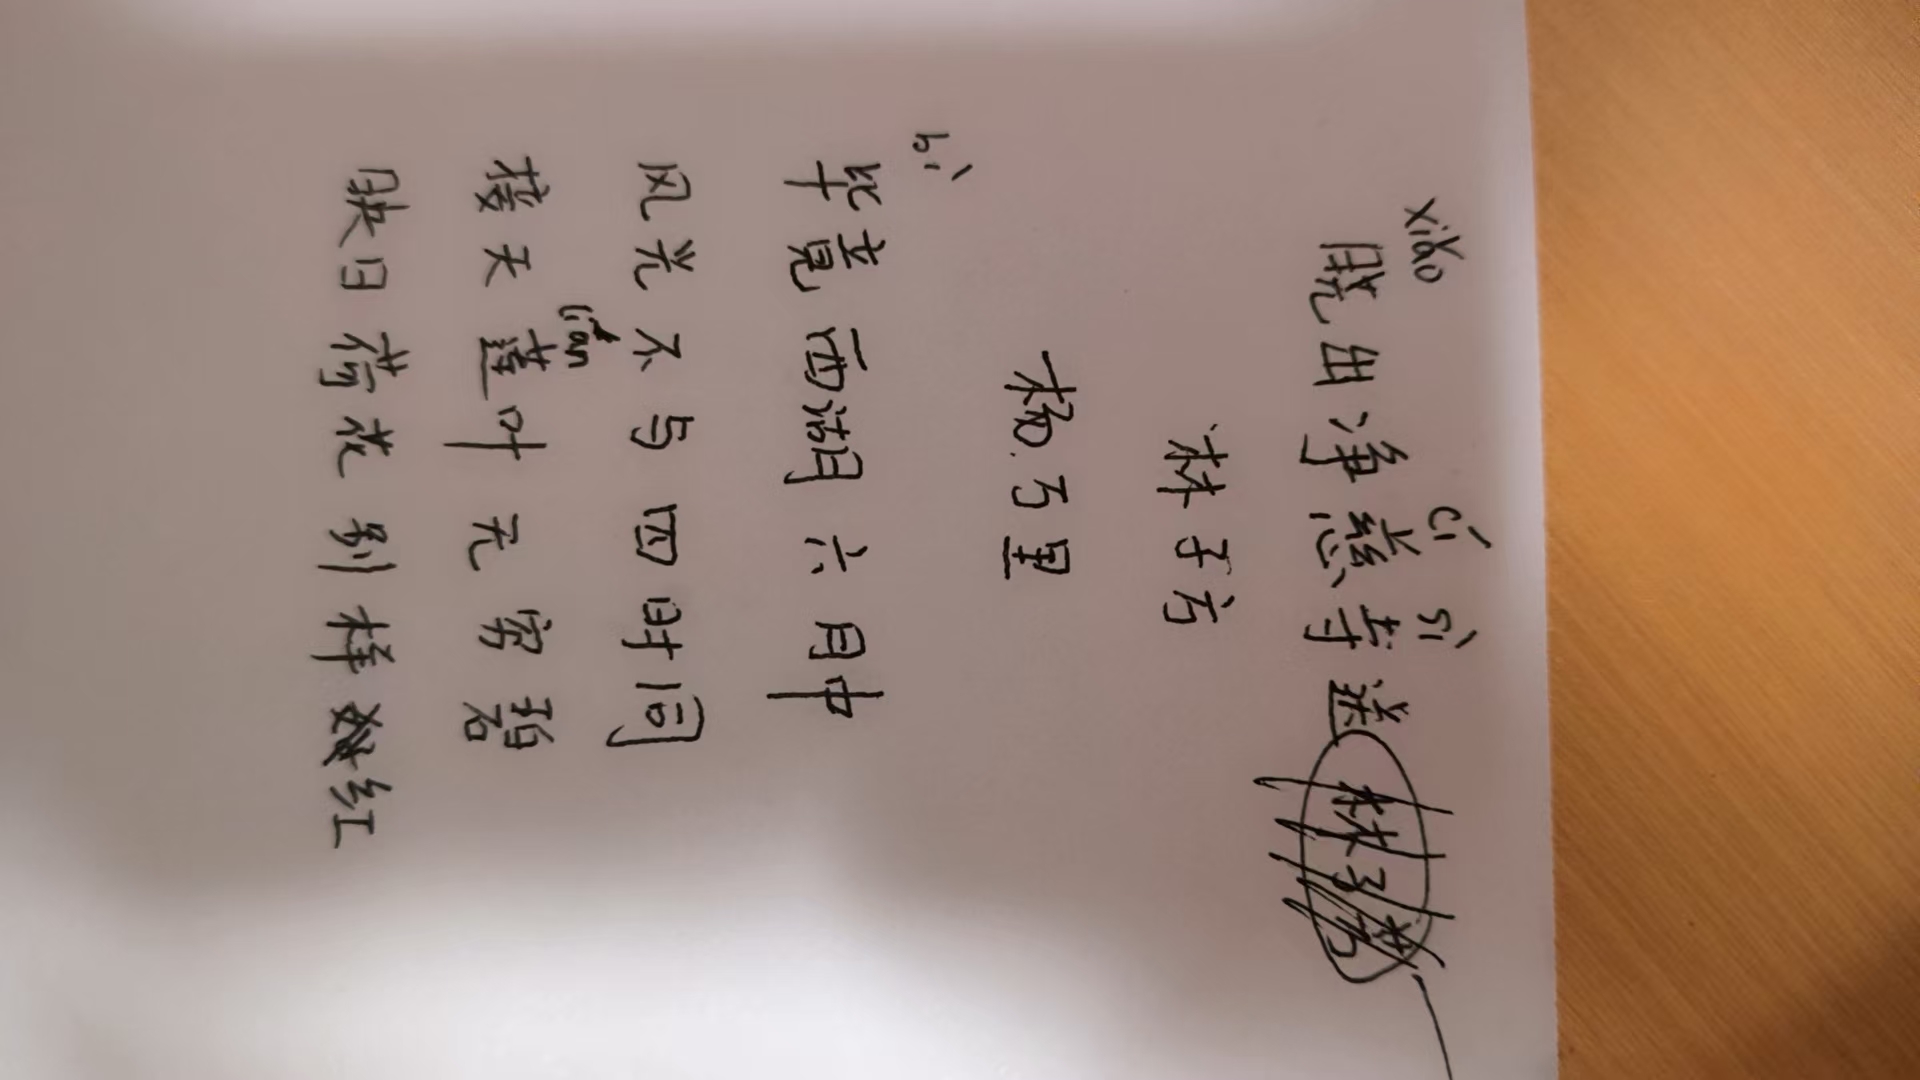 xiǎo cí sì
晓出净慈寺送
林子方
杨万里
bì
毕竟西湖六月中
风光不与四时同
lián
接天莲叶无穷碧
映日荷花别样红